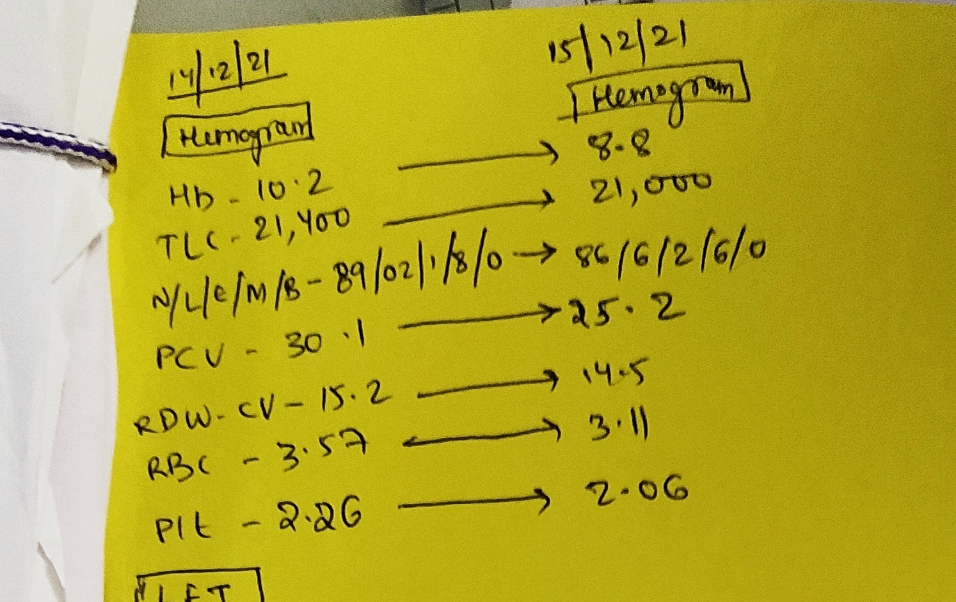 14/12/21 15/12/21
Hemogram Hemogram
Hb - 10.2 → 8.8
TLC - 21,400 → 21,000
N/L/E/M/B - 89/02/1/8/0 → 86/6/2/6/0
PCV - 30.1 → 25.2
RDW-CV - 15.2 → 14.5
RBC - 3.57 → 3.11
Plt - 2.26 → 2.06
LFT